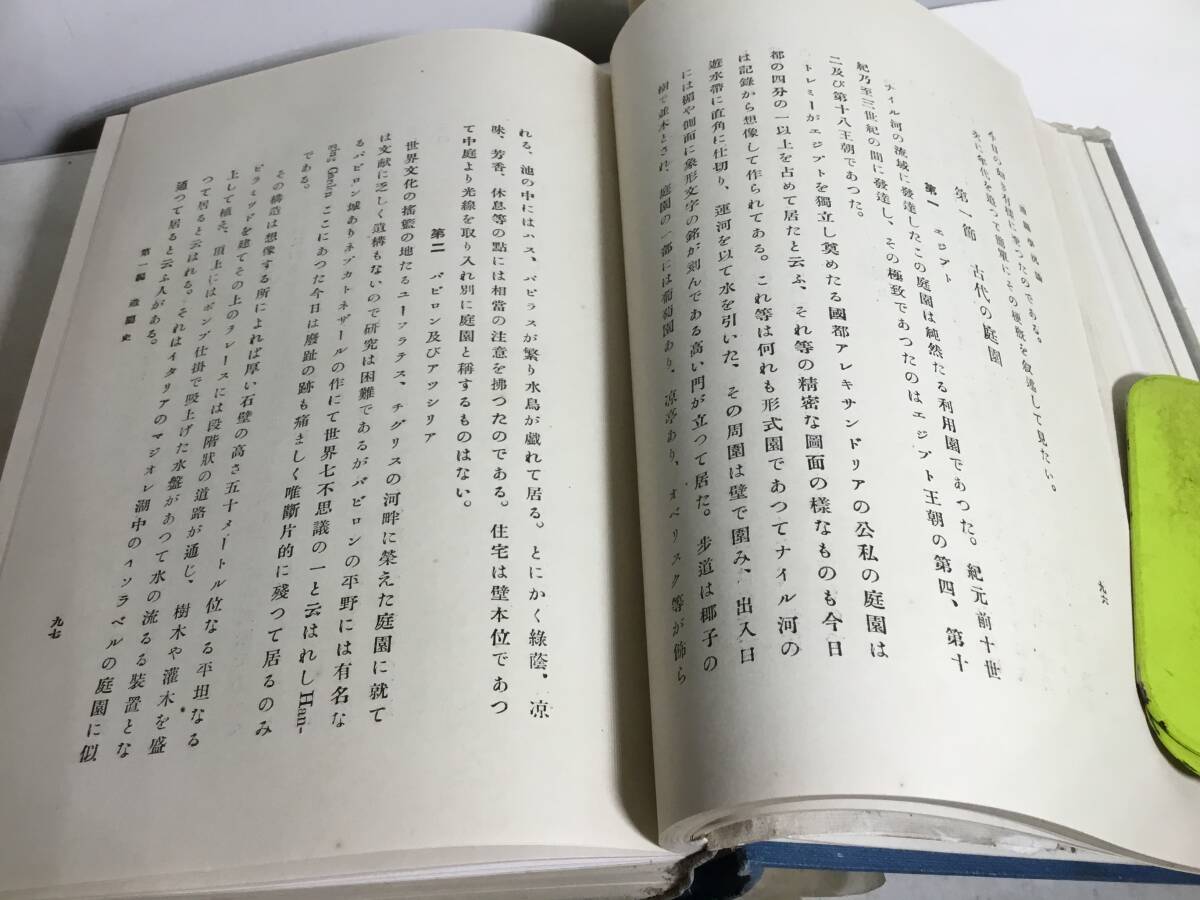 造園學汎論
今日の如き有樣に至つたのである。
次に年代を追つて簡單にその梗概を敍述して見たい。
第一節　古代の庭園
第一　エジプト
ナイル河の流域に發達したこの庭園は純然たる利用園であつた。紀元前十世
紀乃至三世紀の間に發達し、その極致であつたのはエジプト王朝の第四、第十
二及び第十八王朝であつた。
トレミーがエジプトを獨立し奠めたる國都アレキサンドリアの公私の庭園は
都の四分の一以上を占めて居たと云ふ、それ等の精密な圖面の樣なものも今日
は記錄から想像して作られてある。これ等は何れも形式園であつてナイル河の
遊水帶に直角に仕切り、運河を以て水を引いた、その周圍は壁で圍み、出入口
には楣や側面に象形文字の銘が刻んである高い門が立つて居た。步道は椰子の
樹で並木とされ、庭園の一部には葡萄園あり、凉亭あり、オベリスク等が飾ら
九六
れる、池の中にはハス、パピラスが繁り水鳥が戲れて居る。とにかく綠蔭、凉
味、芳香、休息等の點には相當の注意を拂つたのである。住宅は壁本位であつ
て中庭より光線を取り入れ別に庭園と稱するものはない。
第二　バビロン及びアツシリア
世界文化の搖籃の地たるユーフラテス、チグリスの河畔に榮えた庭園に就て
は文献に乏しく遺構もないので研究は困難であるがバビロンの平野には有名な
るバビロン城ありネブカトネザールの作にて世界七不思議の一と云はれしHan-
ging Garden ここにあつた今日は廢趾の跡も痛ましく唯斷片的に殘つて居るのみ
である。
その構造は想像する所によれば厚い石壁の高さ五十メートル位なる平坦なる
ピラミツドを建てその上のテレースには段階狀の道路が通じ、樹木や灌木を盛
上して植ゑ、頂上にはポンプ仕掛で吸上げた水盤があつて水の流るる裝置とな
つて居ると云はれる。それはイタリアのマジオレ湖中のイソラベルの庭園に似
通つて居ると云ふ人がある。
第一編　造園史
九七